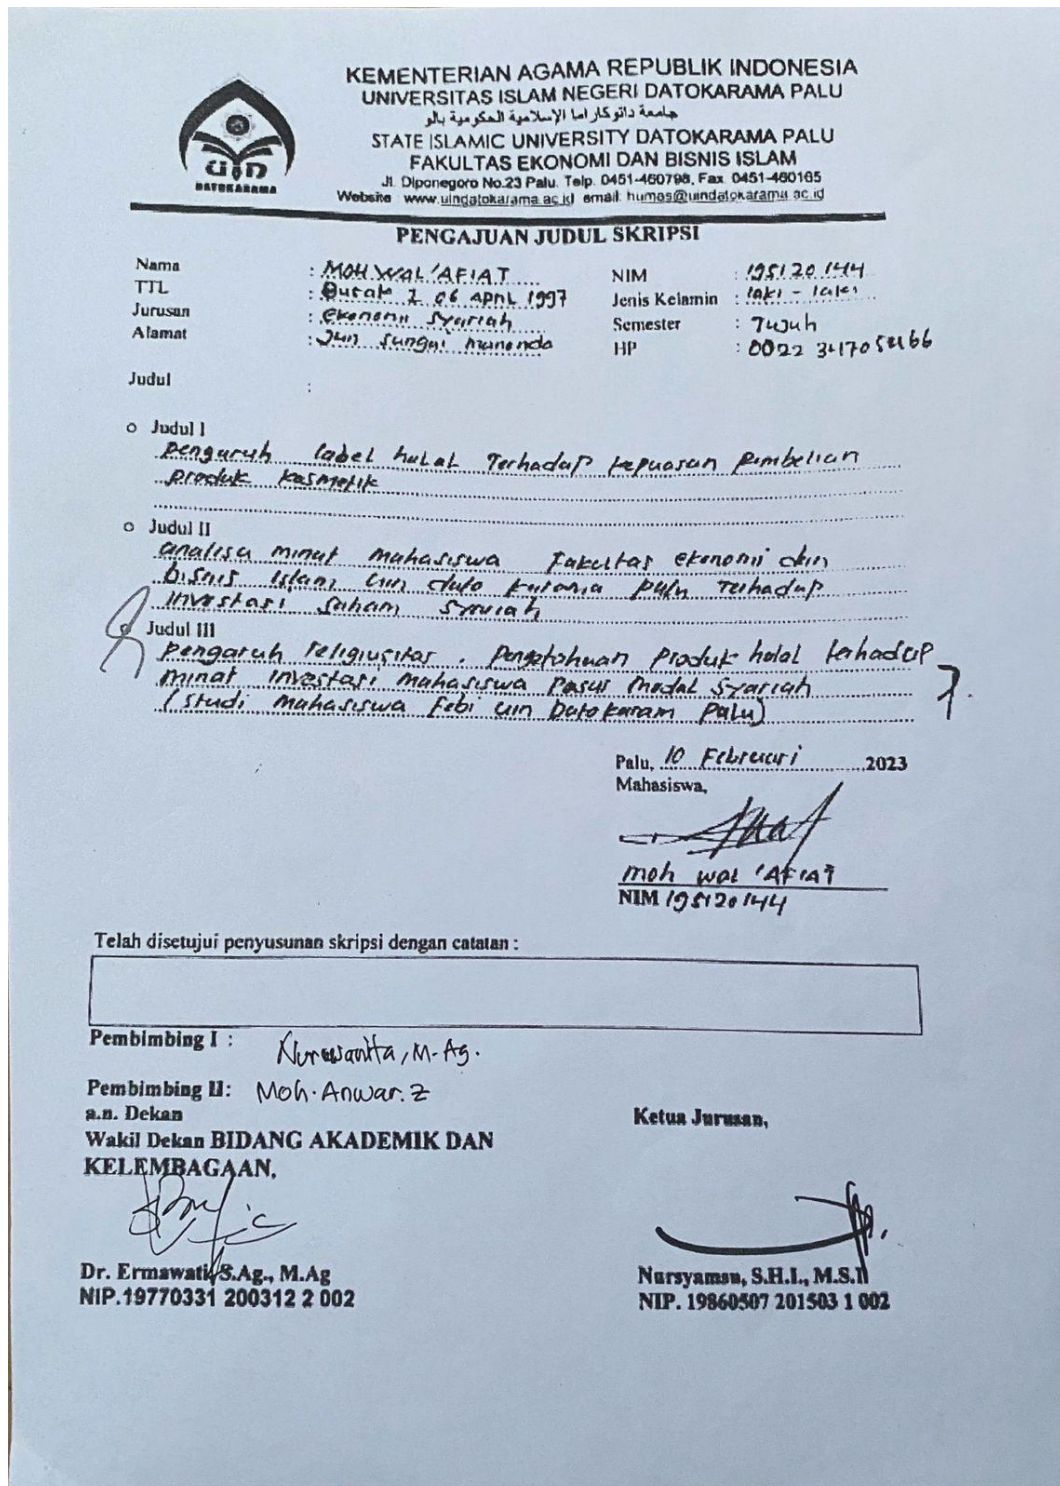 KEMENTERIAN AGAMA REPUBLIK INDONESIA
UNIVERSITAS ISLAM NEGERI DATOKARAMA PALU
جامعة داتوكاراما الإسلامية الحكومية بالو
STATE ISLAMIC UNIVERSITY DATOKARAMA PALU
FAKULTAS EKONOMI DAN BISNIS ISLAM
Jl. Diponegoro No.23 Palu. Telp. 0451-460798, Fax. 0451-460165
Website : www.uindatokarama.ac.id email: humas@uindatokarama.ac.id
uin
DATOKARAMA
PENGAJUAN JUDUL SKRIPSI
Nama : MOH WAL 'AFIAT NIM : 195120144
TTL : 06 APRIL 1997 Jenis Kelamin : laki - laki
Jurusan : ekonomi syariah Semester : Tujuh
Alamat : Jln sungai HP :
Judul :
Judul I
pengaruh label halal Terhadap kepuasan pembelian
produk kosmetik
Judul II
analisa minat mahasiswa Fakultas ekonomi dan
bisnis islam uin dato karama palu Terhadap
investasi saham syariah
Judul III
pengaruh religiusitas, pengetahuan produk halal terhadap
minat investasi mahasiswa pasar modal syariah
(studi mahasiswa febi uin Datokaram palu)
Palu, 10 Februari 2023
Mahasiswa,
moh wal 'AFIAT
NIM 195120144
Telah disetujui penyusunan skripsi dengan catatan :
Pembimbing I : Nurwanita, M.Ag.
Pembimbing II: Moh. Anwar. Z
a.n. Dekan
Wakil Dekan BIDANG AKADEMIK DAN
KELEMBAGAAN,
Ketua Jurusan,
Dr. Ermawati, S.Ag., M.Ag
NIP.19770331 200312 2 002
Nursyamsu, S.H.I., M.S.I
NIP. 19860507 201503 1 002